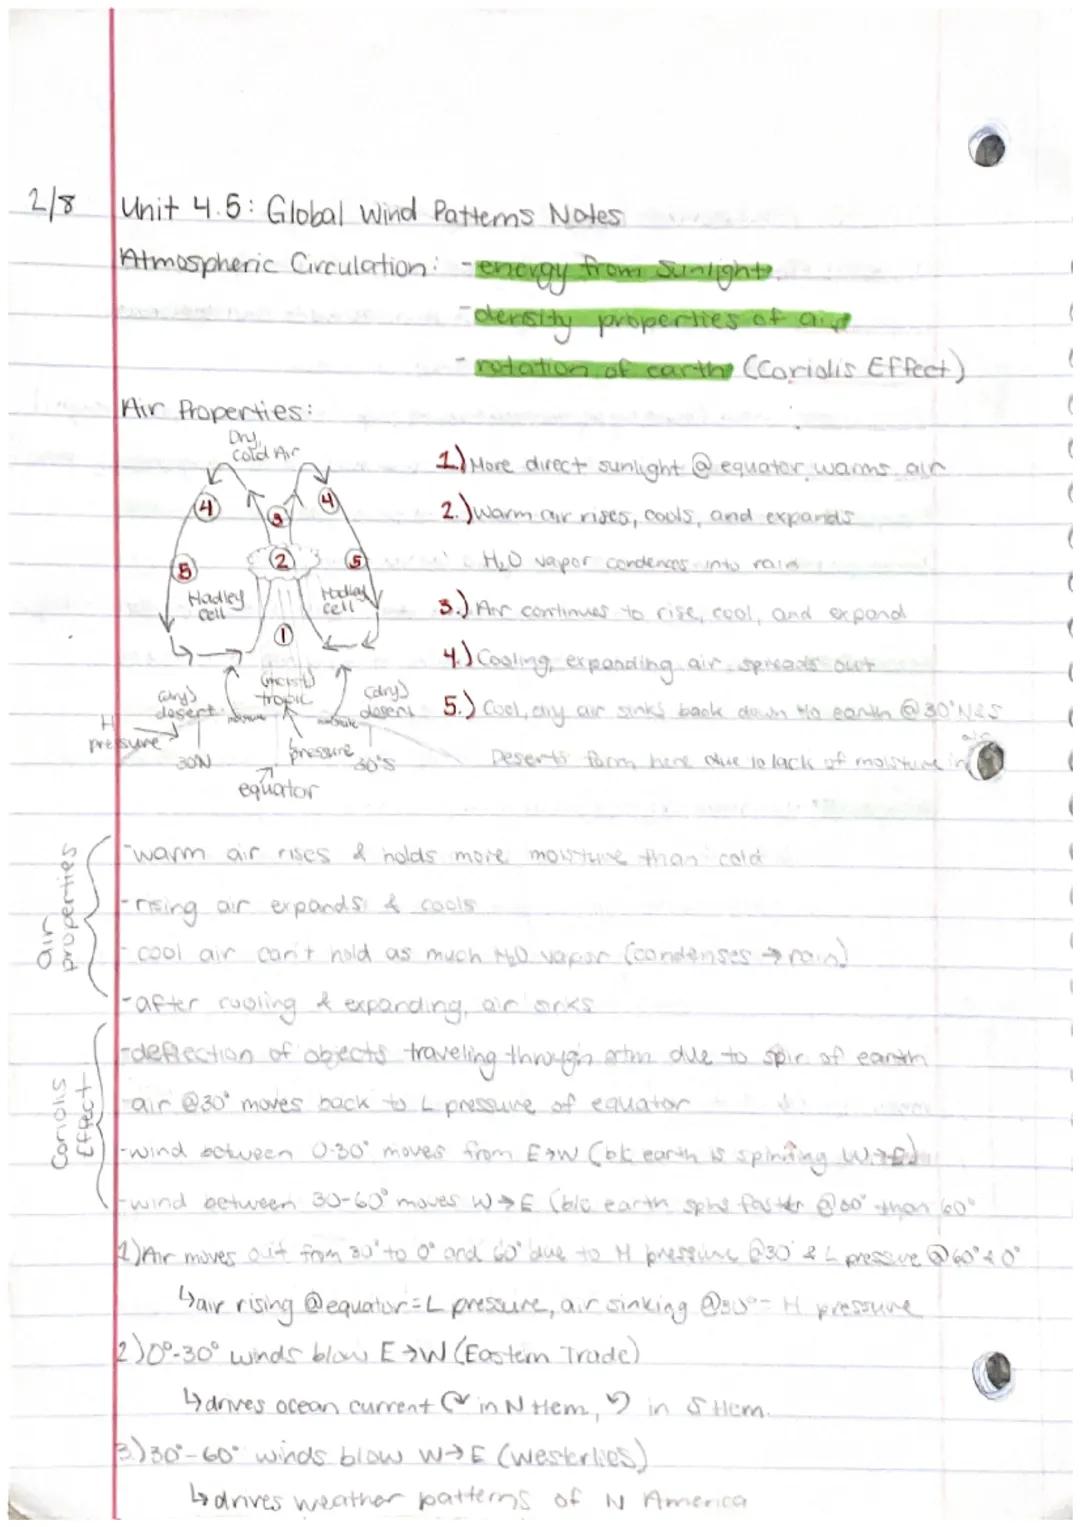 2/8 Unit 4.5: Global Wind Patterns Notes
Atmospheric Circulation: - energy from sunlight
- density properties of air
- rotation of earth (Coriolis Effect)
Air Properties:
Dry,
Cold Air
4
4
3
2
5
5
Hadley
cell
Hadley
cell
1
(moist)
tropic
(dry)
desert
(dry)
desert
moisture
moisture
H
pressure
pressure
30°N
30°S
equator
1.) More direct sunlight @ equator warms air
2.) Warm air rises, cools, and expands
H₂O vapor condenses into rain
3.) Air continues to rise, cool, and expand
4.) Cooling, expanding air spreads out
5.) Cool, dry air sinks back down to earth @ 30°N&S
Deserts form here due to lack of moisture in air
air
properties
-warm air rises & holds more moisture than cold
-rising air expands & cools
-cool air can't hold as much H₂O vapor (condenses → rain)
-after cooling & expanding, air sinks
Coriolis
Effect
-deflection of objects traveling through atm due to spin of earth
-air @30° moves back to L pressure of equator
-wind between 0-30° moves from E→W (b/c earth is spinning W→E)
-wind between 30-60° moves W→E (b/c earth spins faster @30° than 60°
1) Air moves out from 30° to 0° and 60° due to H pressure @30 & L pressure @60° & 0°
↳air rising @equator = L pressure, air sinking @30° = H pressure
2) 0°-30° winds blow E→W (Eastern Trade)
↳drives ocean current ↻ in N Hem, ↺ in S Hem.
3.) 30°-60° winds blow W→E (Westerlies)
↳drives weather patterns of N America